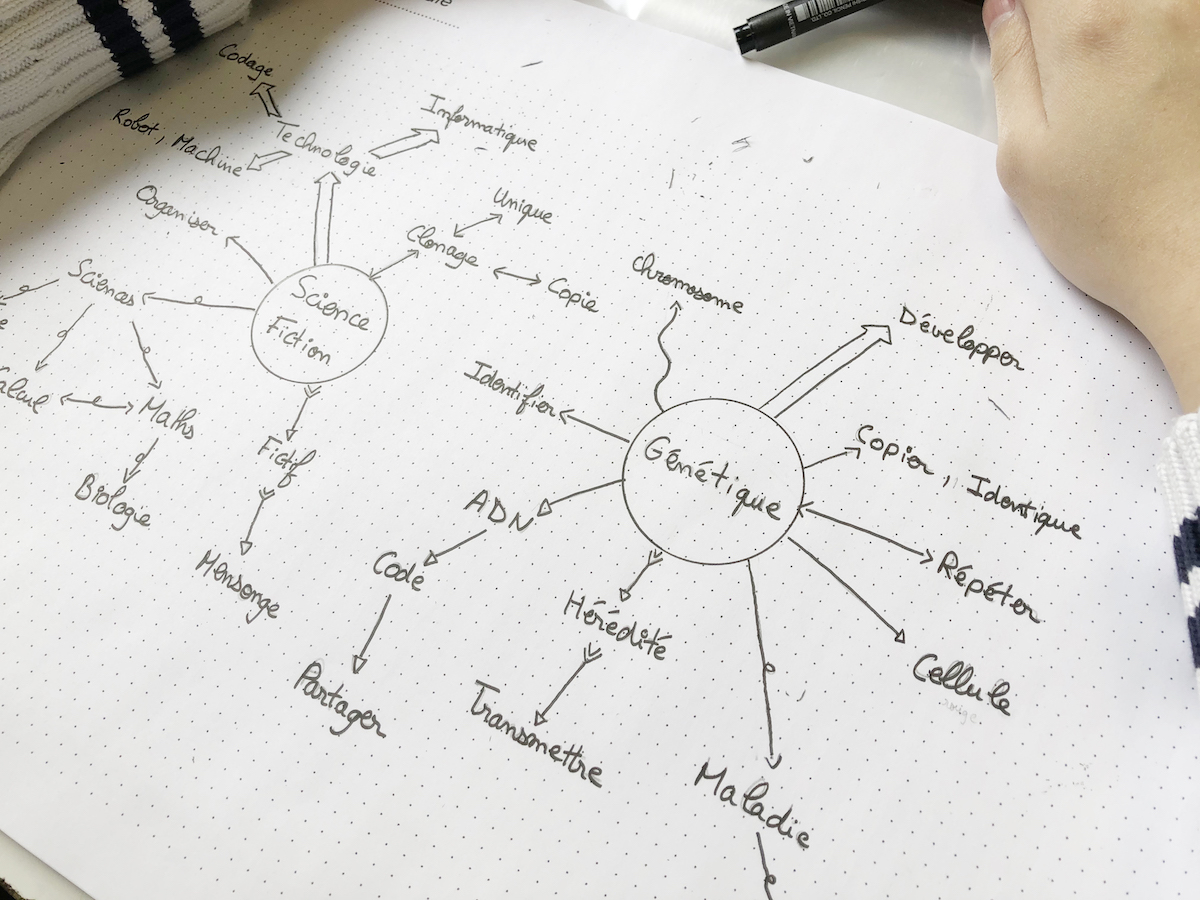 Codage
Technologie
Informatique
Robot, Machine
Organiser
Unique
Clonage
Copie
Sciences
Science
Fiction
Maths
Biologie
Fictif
Mensonge
Chromosome
Développer
Identifier
Génétique
Copier, Identique
Répéter
Cellule
ADN
Code
Partager
Hérédité
Transmettre
Maladie